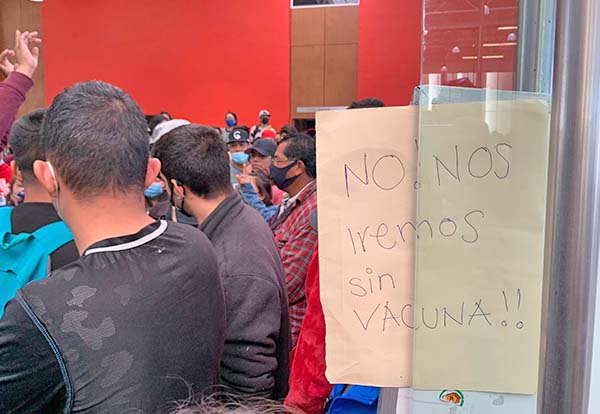 NO! NOS
Iremos
sin
VACUNA!!